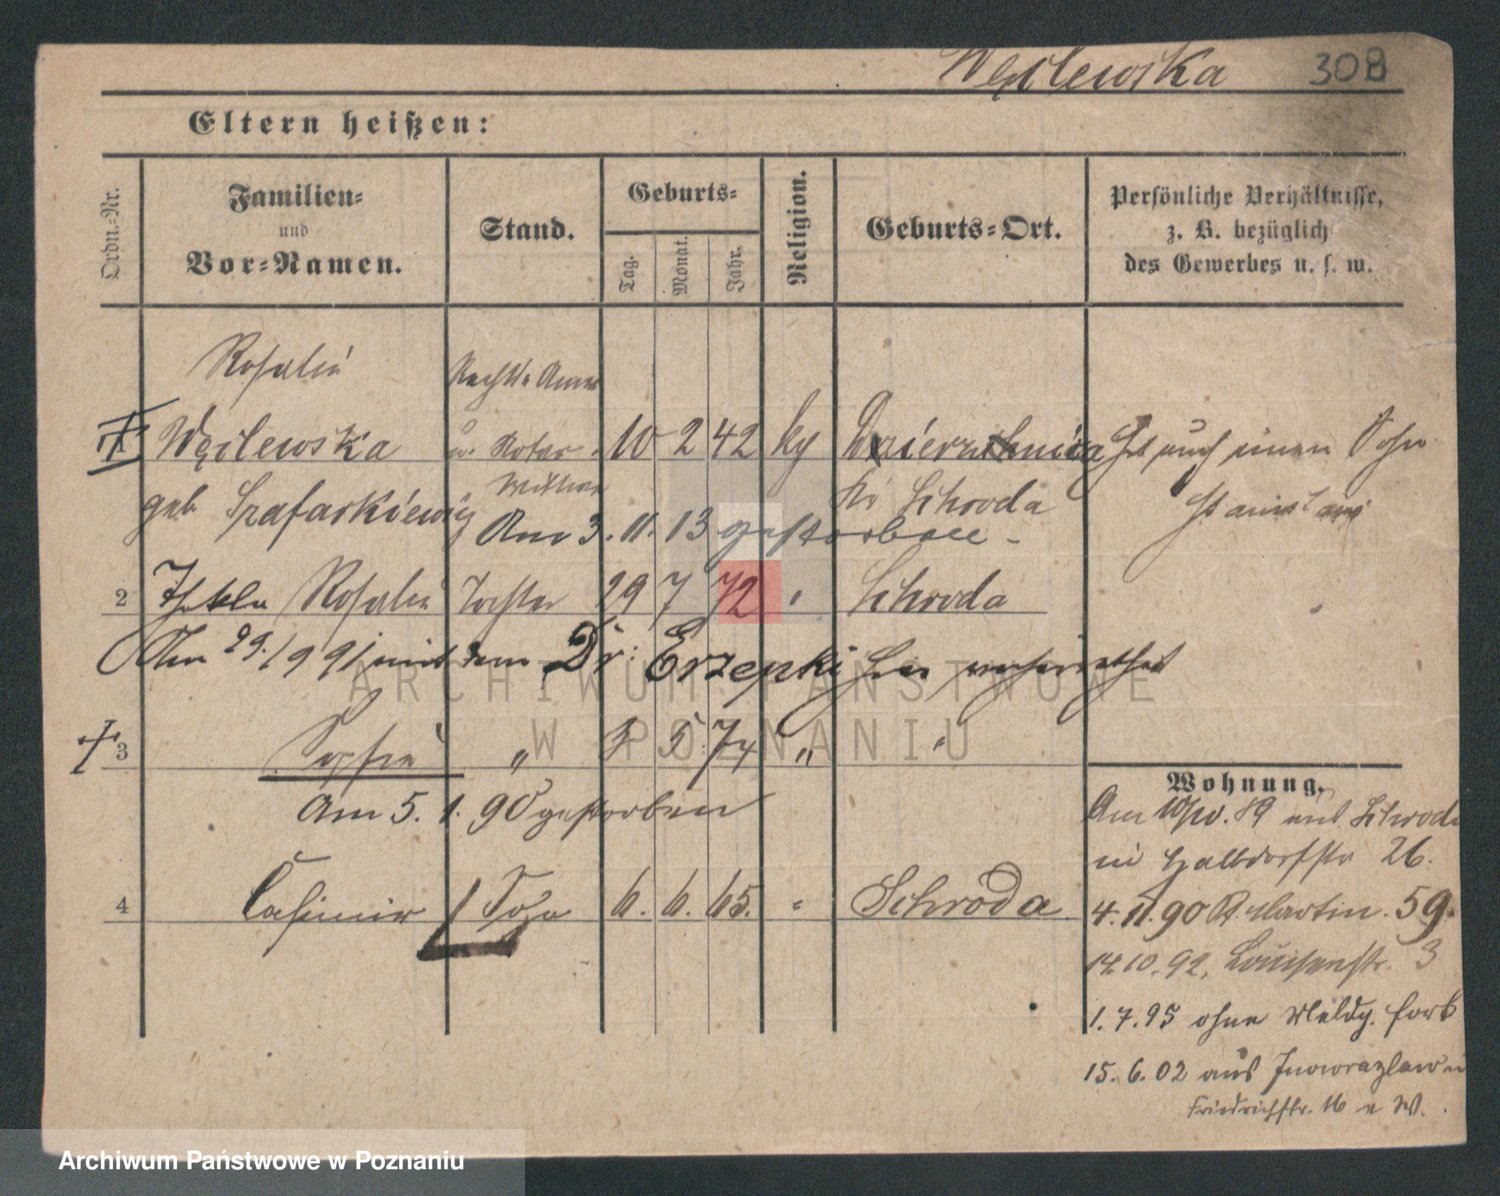 Węclewska 308
Eltern heißen:
Ordn.-Nr.
Familien-
und
Vor-Namen.
Stand.
Geburts-
Tag.
Monat.
Jahr.
Religion.
Geburts-Ort.
Persönliche Verhältnisse,
z. B. bezüglich
des Gewerbes u. s. w.
Rosalie Rechts Anw
Węclewska u. Notar 10 2 42 kg Dzierznica Hat auch einen Sohn
Wittwe Kr Schroda Stanislaus
geb Szafarkiewicz Am 3. 11. 13 gestorben
2 Thekla Rosalie Tochter 29 7 72 " Schroda
Am 29./1 91 mit dem Dr: Erzepki hier verheirathet
3 Sophie " 3 5 74 " "
Am 5. 1. 90 gestorben
4 Casimir Sohn 6. 6. 65. " Schroda
Wohnung.
Am 10/10. 89 aus Schroda
in Halbdorfstr 26.
4. 11. 90 St Martin. 59.
14.10.92. Louisenstr. 3
1. 7. 95 ohne Meldg. fort
15. 6. 02 aus Inowrazlaw in
Friedrichstr. 16 a W.
ARCHIWUM PAŃSTWOWE
W POZNANIU
Archiwum Państwowe w Poznaniu